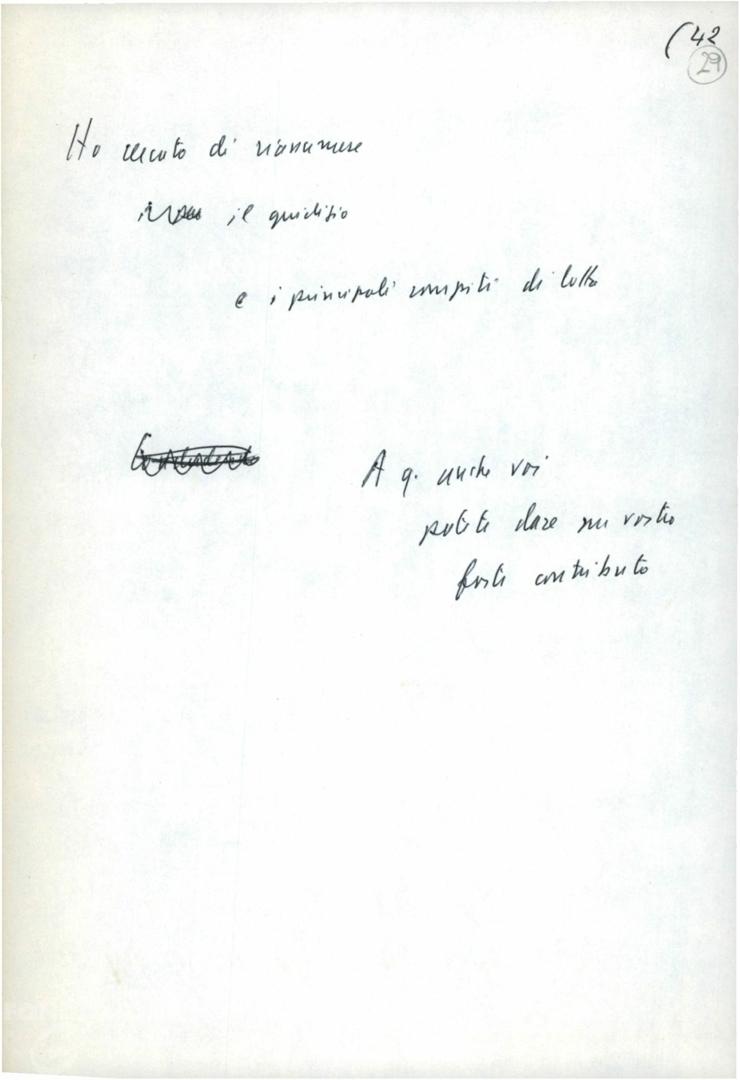 (42
29
Ho cercato di riassumere
il giudizio
e i principali compiti di lotta
A q. anche voi
potete dare un vostro
forte contributo